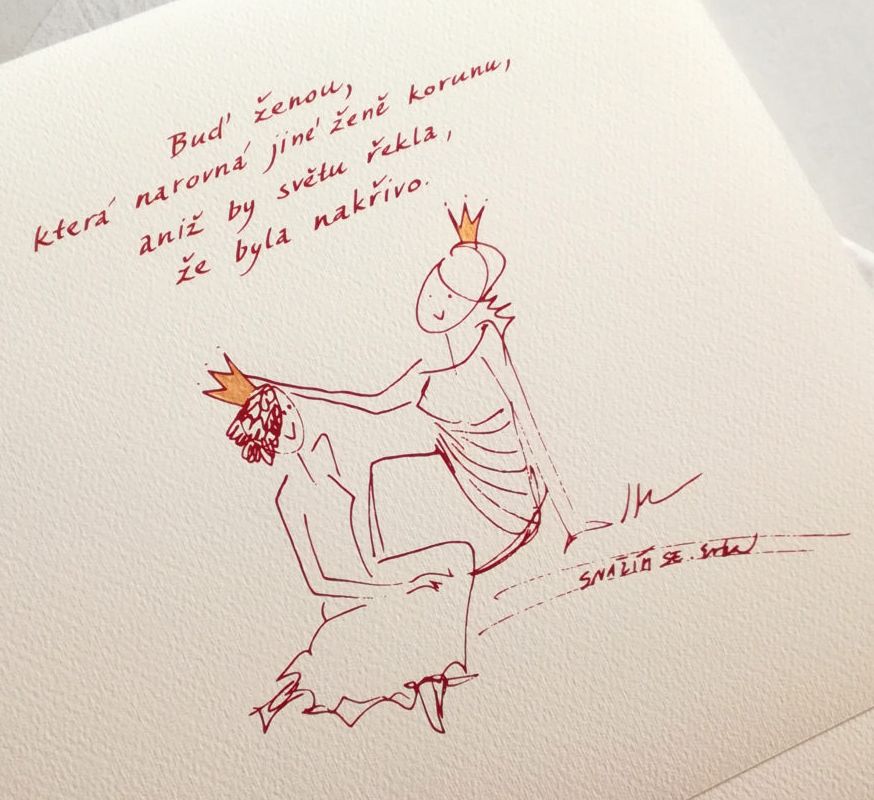 Buď ženou,
která narovná jiné ženě korunu,
aniž by světu řekla,
že byla nakřivo.
SNAŽÍM SE